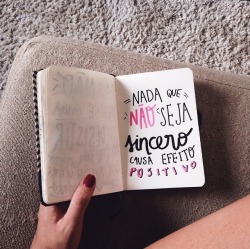 NADA QUE
NÃO SEJA
sincero
CAUSA EFEITO
POSITIVO